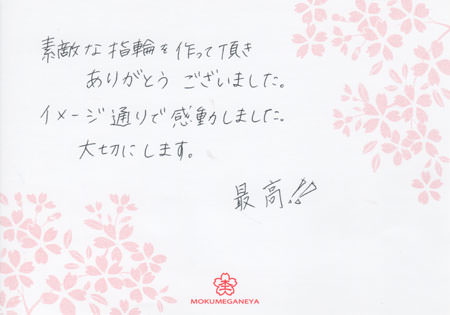 素敵な指輪を作って頂き
ありがとうございました。
イメージ通りで感動しました。
大切にします。
最高!!
MOKUMEGANEYA